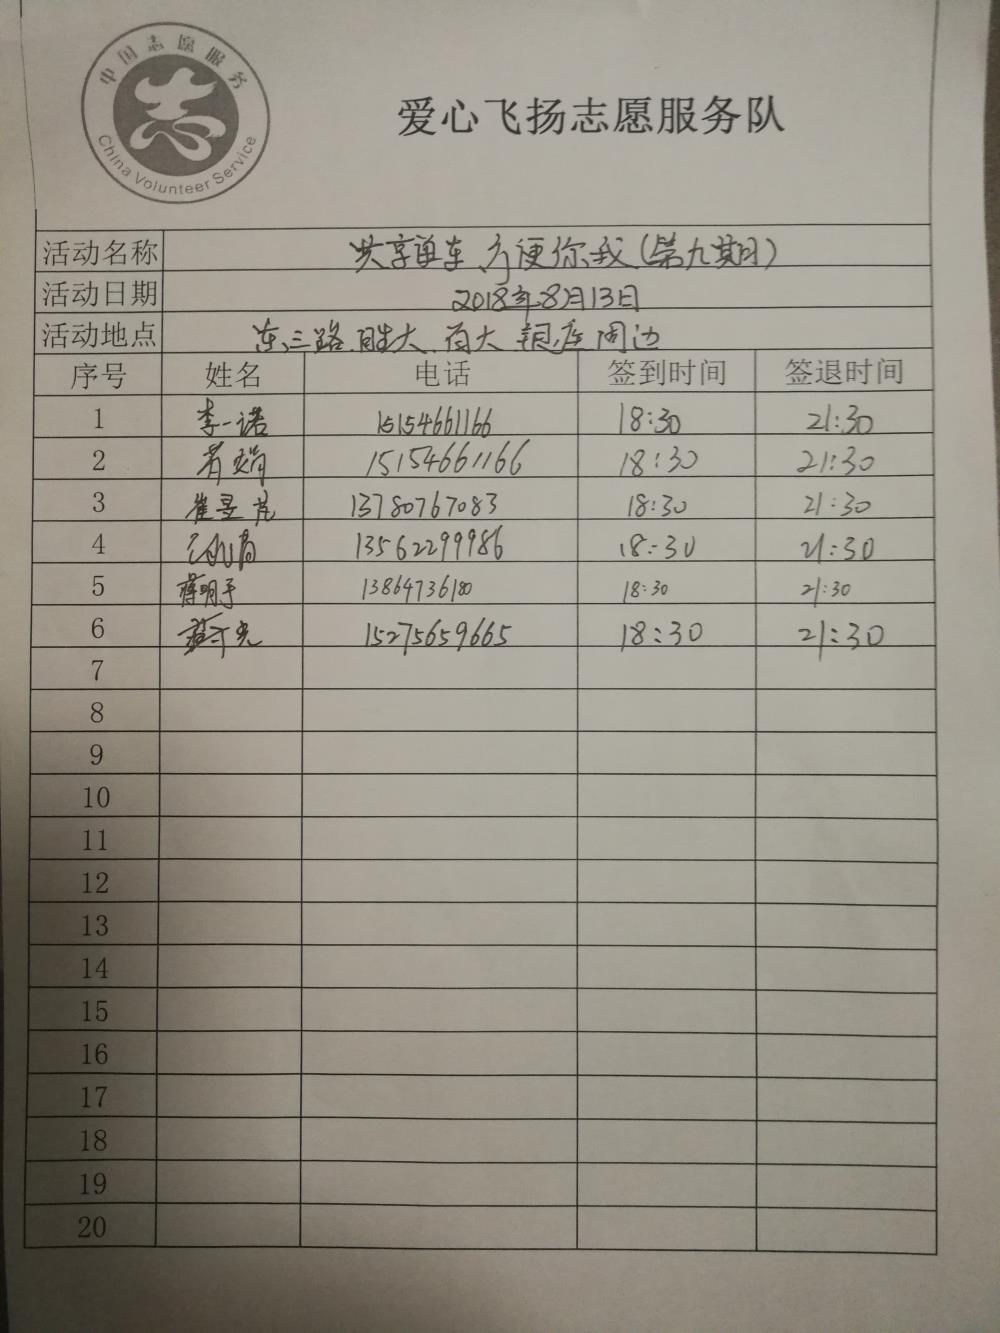 中国志愿服务
China Volunteer Service
爱心飞扬志愿服务队
活动名称 共享单车、方便你我(第九期)
活动日期 2018年8月13日
活动地点 东三路、胜大、百大、银座周边
序号 姓名 电话 签到时间 签退时间
1 李一诺 15154661166 18:30 21:30
2 15154661166 18:30 21:30
3 崔昱芃 13780767083 18:30 21:30
4 13562299986 18:30 21:30
5 蒋明宇 13864736180 18:30 21:30
6 15275659665 18:30 21:30
7
8
9
10
11
12
13
14
15
16
17
18
19
20